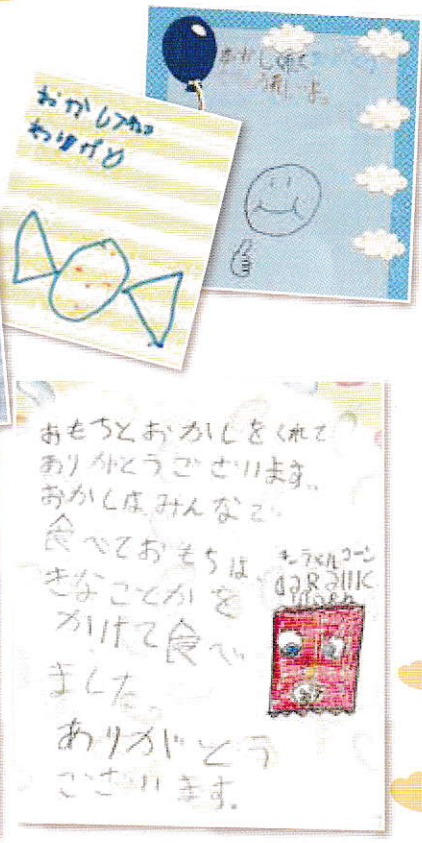 おかし
おかしくれて
おもちとおかしをくれて
ありがとうございます。
おかしはみんなで
食べておもちは
きなことかを
かけて食べ
ました。
ありがとう
ございます。
キャラメルコーン